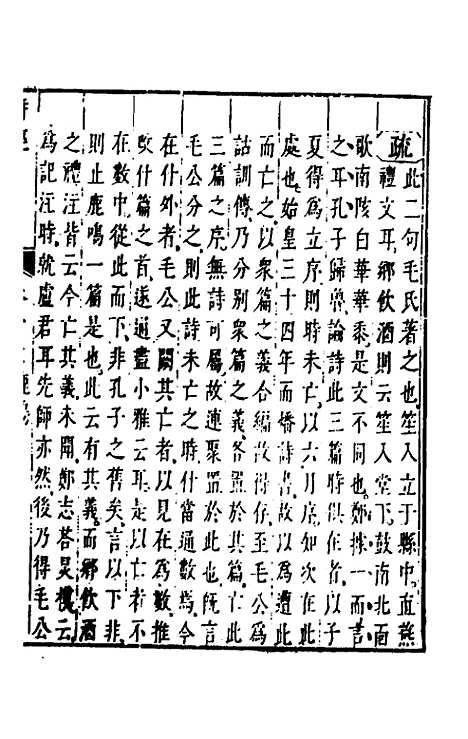 疏此二句毛氏著之也笙入立于縣中直燕
禮文耳鄉飲酒則云笙入堂下鼓南北面
歌南陔白華華黍是文不同也鄭據一而言
之耳孔子歸魯論詩此三篇時俱在者以子
夏得為立序則時未亡以六月序如次在此
處也始皇三十四年而燔詩書故以為遭此
而亡之以衆篇之義合編故得存至毛公為
詁訓傳乃分別衆篇之義各置於其篇亡此
三篇之序無詩可屬故連聚置於此也既言
毛公分之則此詩未亡之時什當通數焉今
在什外者毛公又闕其亡者以見在為數推
改什篇之首遂通盡小雅云耳是以亡者不
在數中從此而下非孔子之舊矣言以下非
則止鹿鳴一篇是也此云有其義而鄉飲酒
之禮注皆云今亡其義未聞鄭志荅炅模云
為記注時就盧君耳先師亦然後乃得毛公